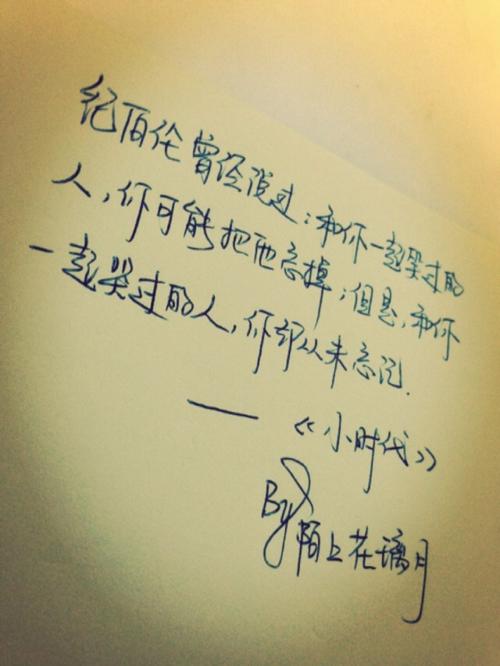 纪佰伦曾经说过：和你一起哭过的
人，你可能把他忘掉；但是，和你
一起哭过的人，你却从未忘记.
——《小时代》
By陌上花璃月